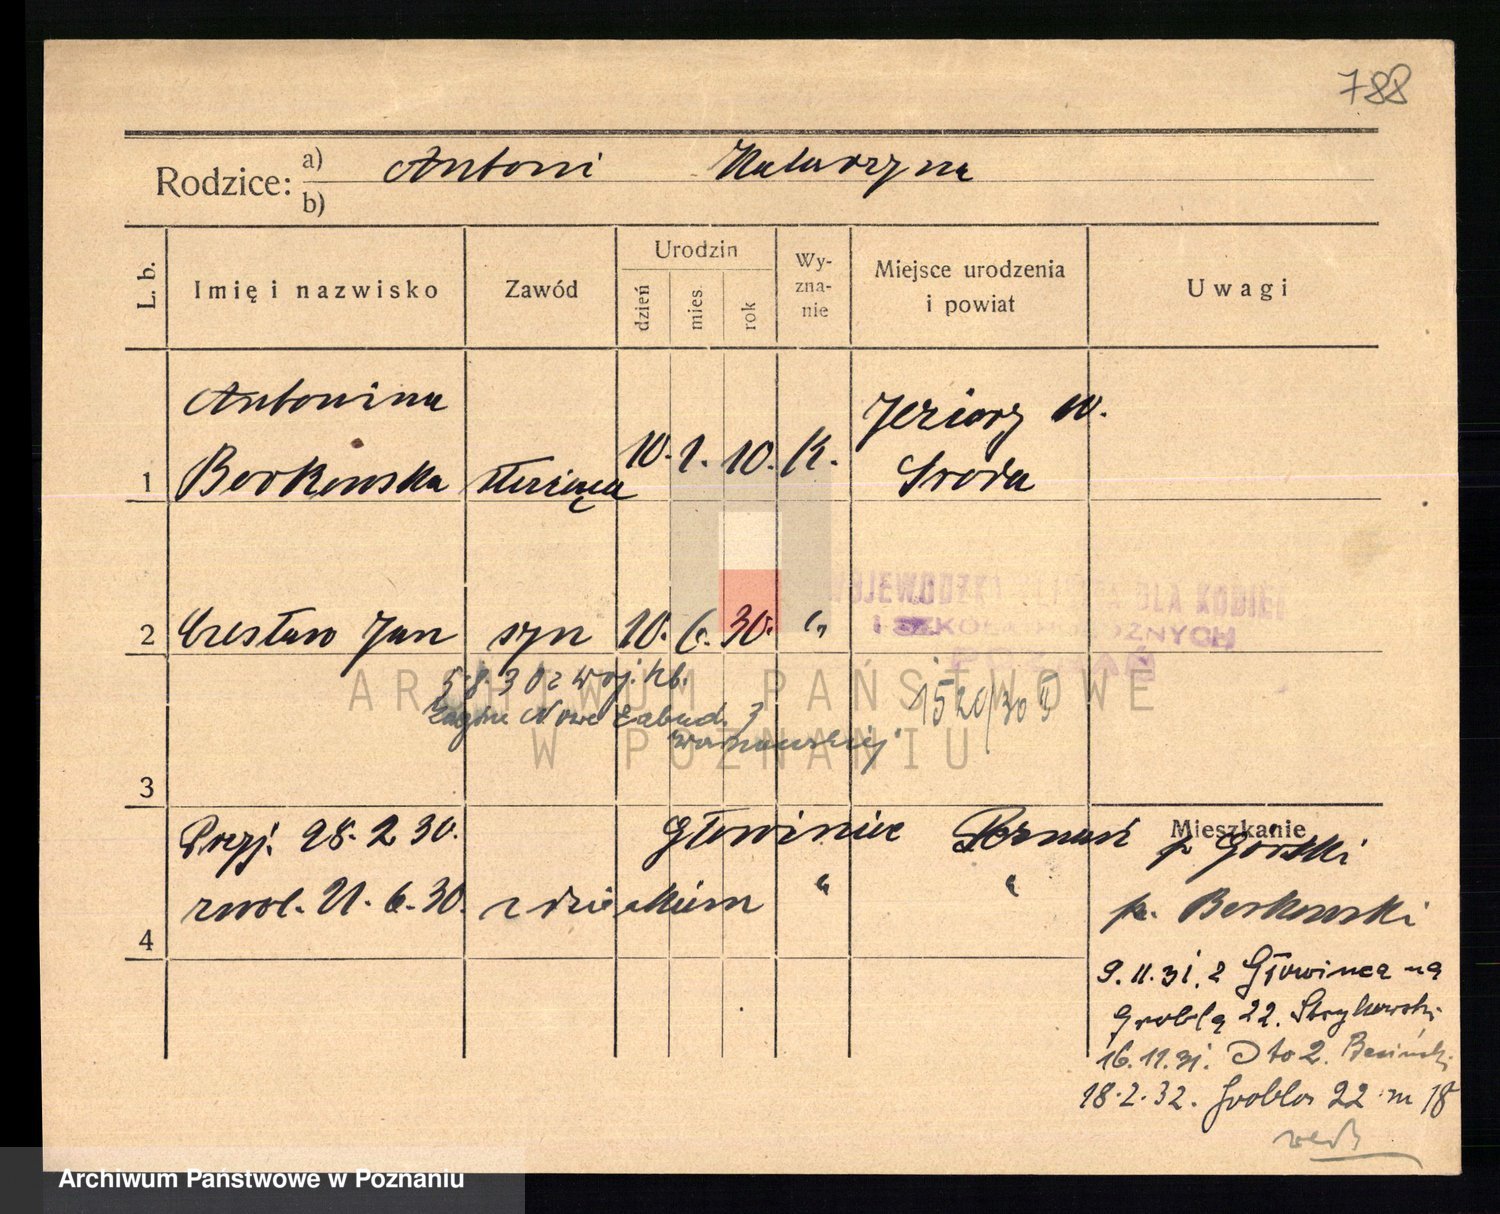 788
Rodzice: a) Antoni Katarzyna
b)
L. b.
Imię i nazwisko
Zawód
Urodzin
dzień
mies.
rok
Wy-
zna-
nie
Miejsce urodzenia
i powiat
Uwagi
Antonina
Jeziory W.
1 Borkowska służąca 10. 1. 10. K. Środa
WOJEWÓDZKA KLINIKA DLA KOBIET
I SZKOŁA POŁOŻNYCH
POZNAŃ
2 Czesław Jan syn 10. 6. 30. "
5.8.30 z woj. kb.
Nowe Zabud. 7
1520/30 II
ARCHIWUM PAŃSTWOWE
W POZNANIU
3
Mieszkanie
Przyj. 28. 2 30. Głowiniec Poznań p Górski
zwol. 21. 6. 30. z dzieckiem " "
p. Borkowski
4
9. 11. 31. z Głowińca na
Groblą 22. Strykowski
16. 11. 31. Dto 2.
18. 2. 32. Grobla 22 m 18
Archiwum Państwowe w Poznaniu